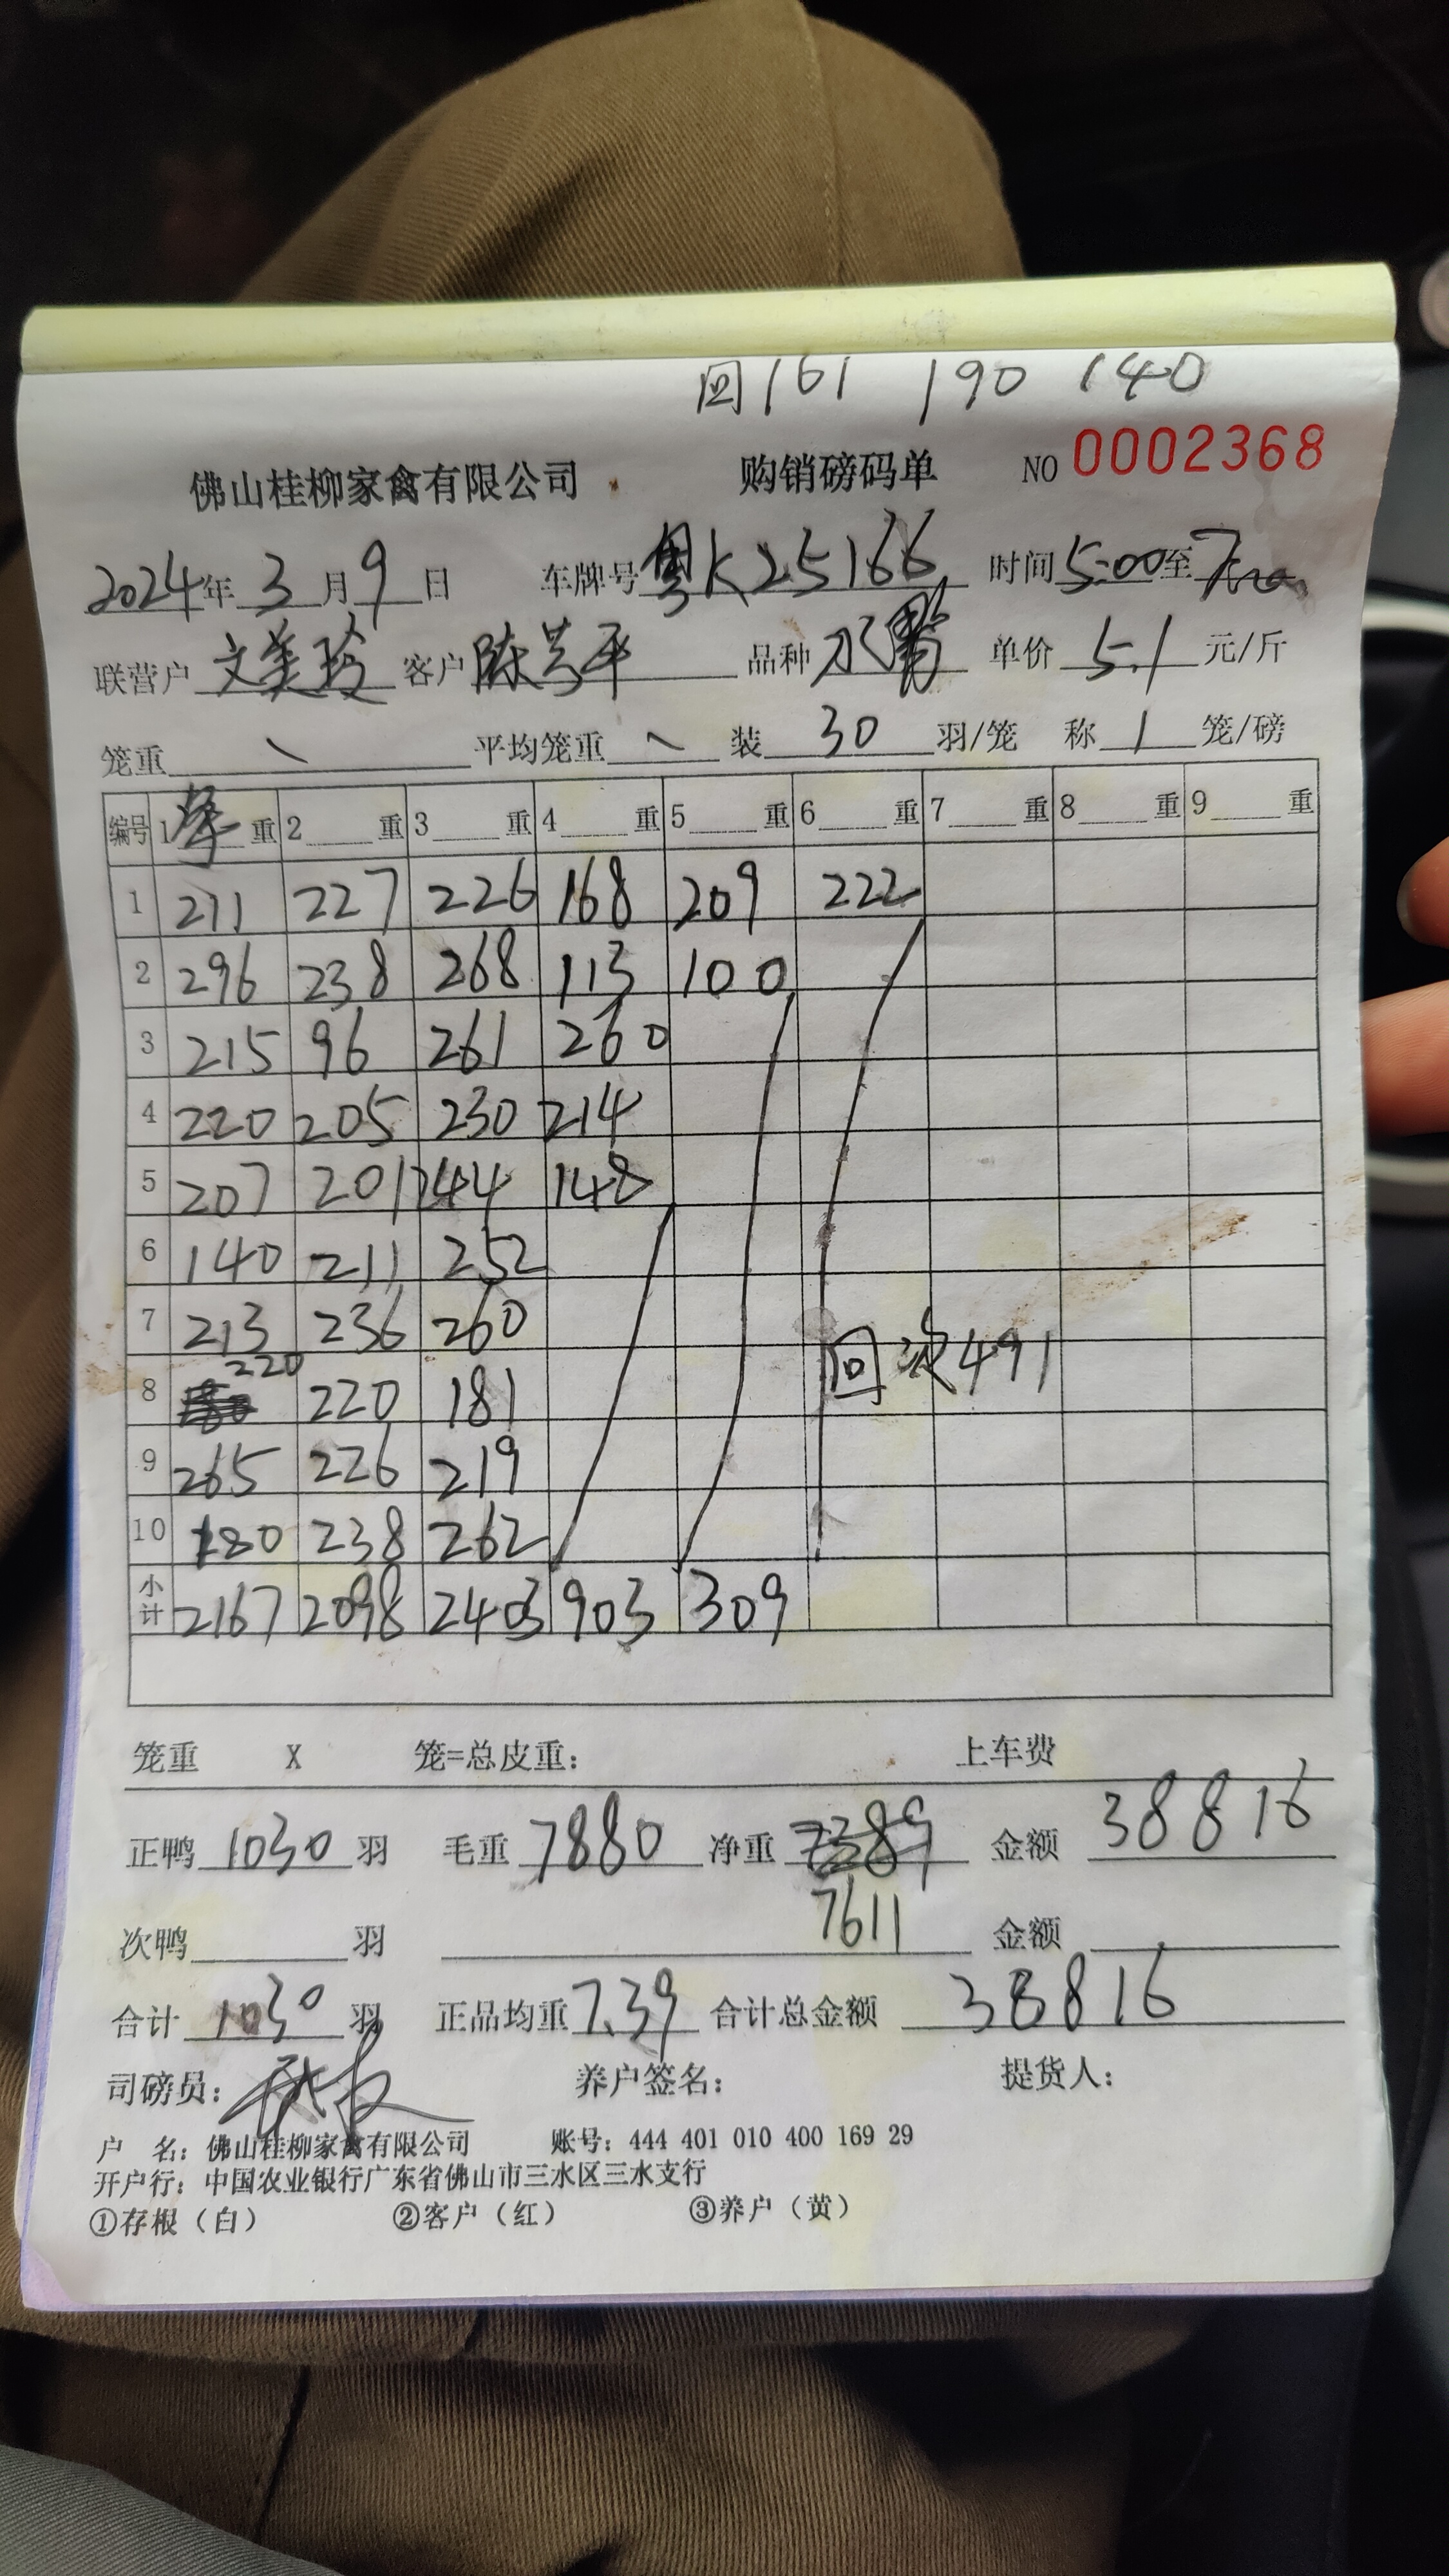 回161 190 140
佛山桂柳家禽有限公司 购销磅码单 NO 0002368
2024年3月9日 车牌号粤K25166 时间5:00至
联营户文美玲 客户陈 平 品种水鸭 单价5.1元/斤
笼重 平均笼重 装30羽/笼 称1笼/磅
编号 1单重 2重 3重 4重 5重 6重 7重 8重 9重
1 211 227 226 168 209 222
2 296 238 268 113 100
3 215 96 261 260
4 220 205 230 214
5 207 201 244 148
6 140 211 252
7 213 236 260
8 220 220 181 回次491
9 265 226 219
10 180 238 262
小计 2167 2098 2403 903 309
笼重 X 笼=总皮重: 上车费
正鸭1030羽 毛重7880 净重7389 金额38816
7611
次鸭 羽 金额
合计1030羽 正品均重7.39 合计总金额38816
司磅员: 养户签名: 提货人:
户 名: 佛山桂柳家禽有限公司 账号: 444 401 010 400 169 29
开户行: 中国农业银行广东省佛山市三水区三水支行
①存根(白) ②客户(红) ③养户(黄)